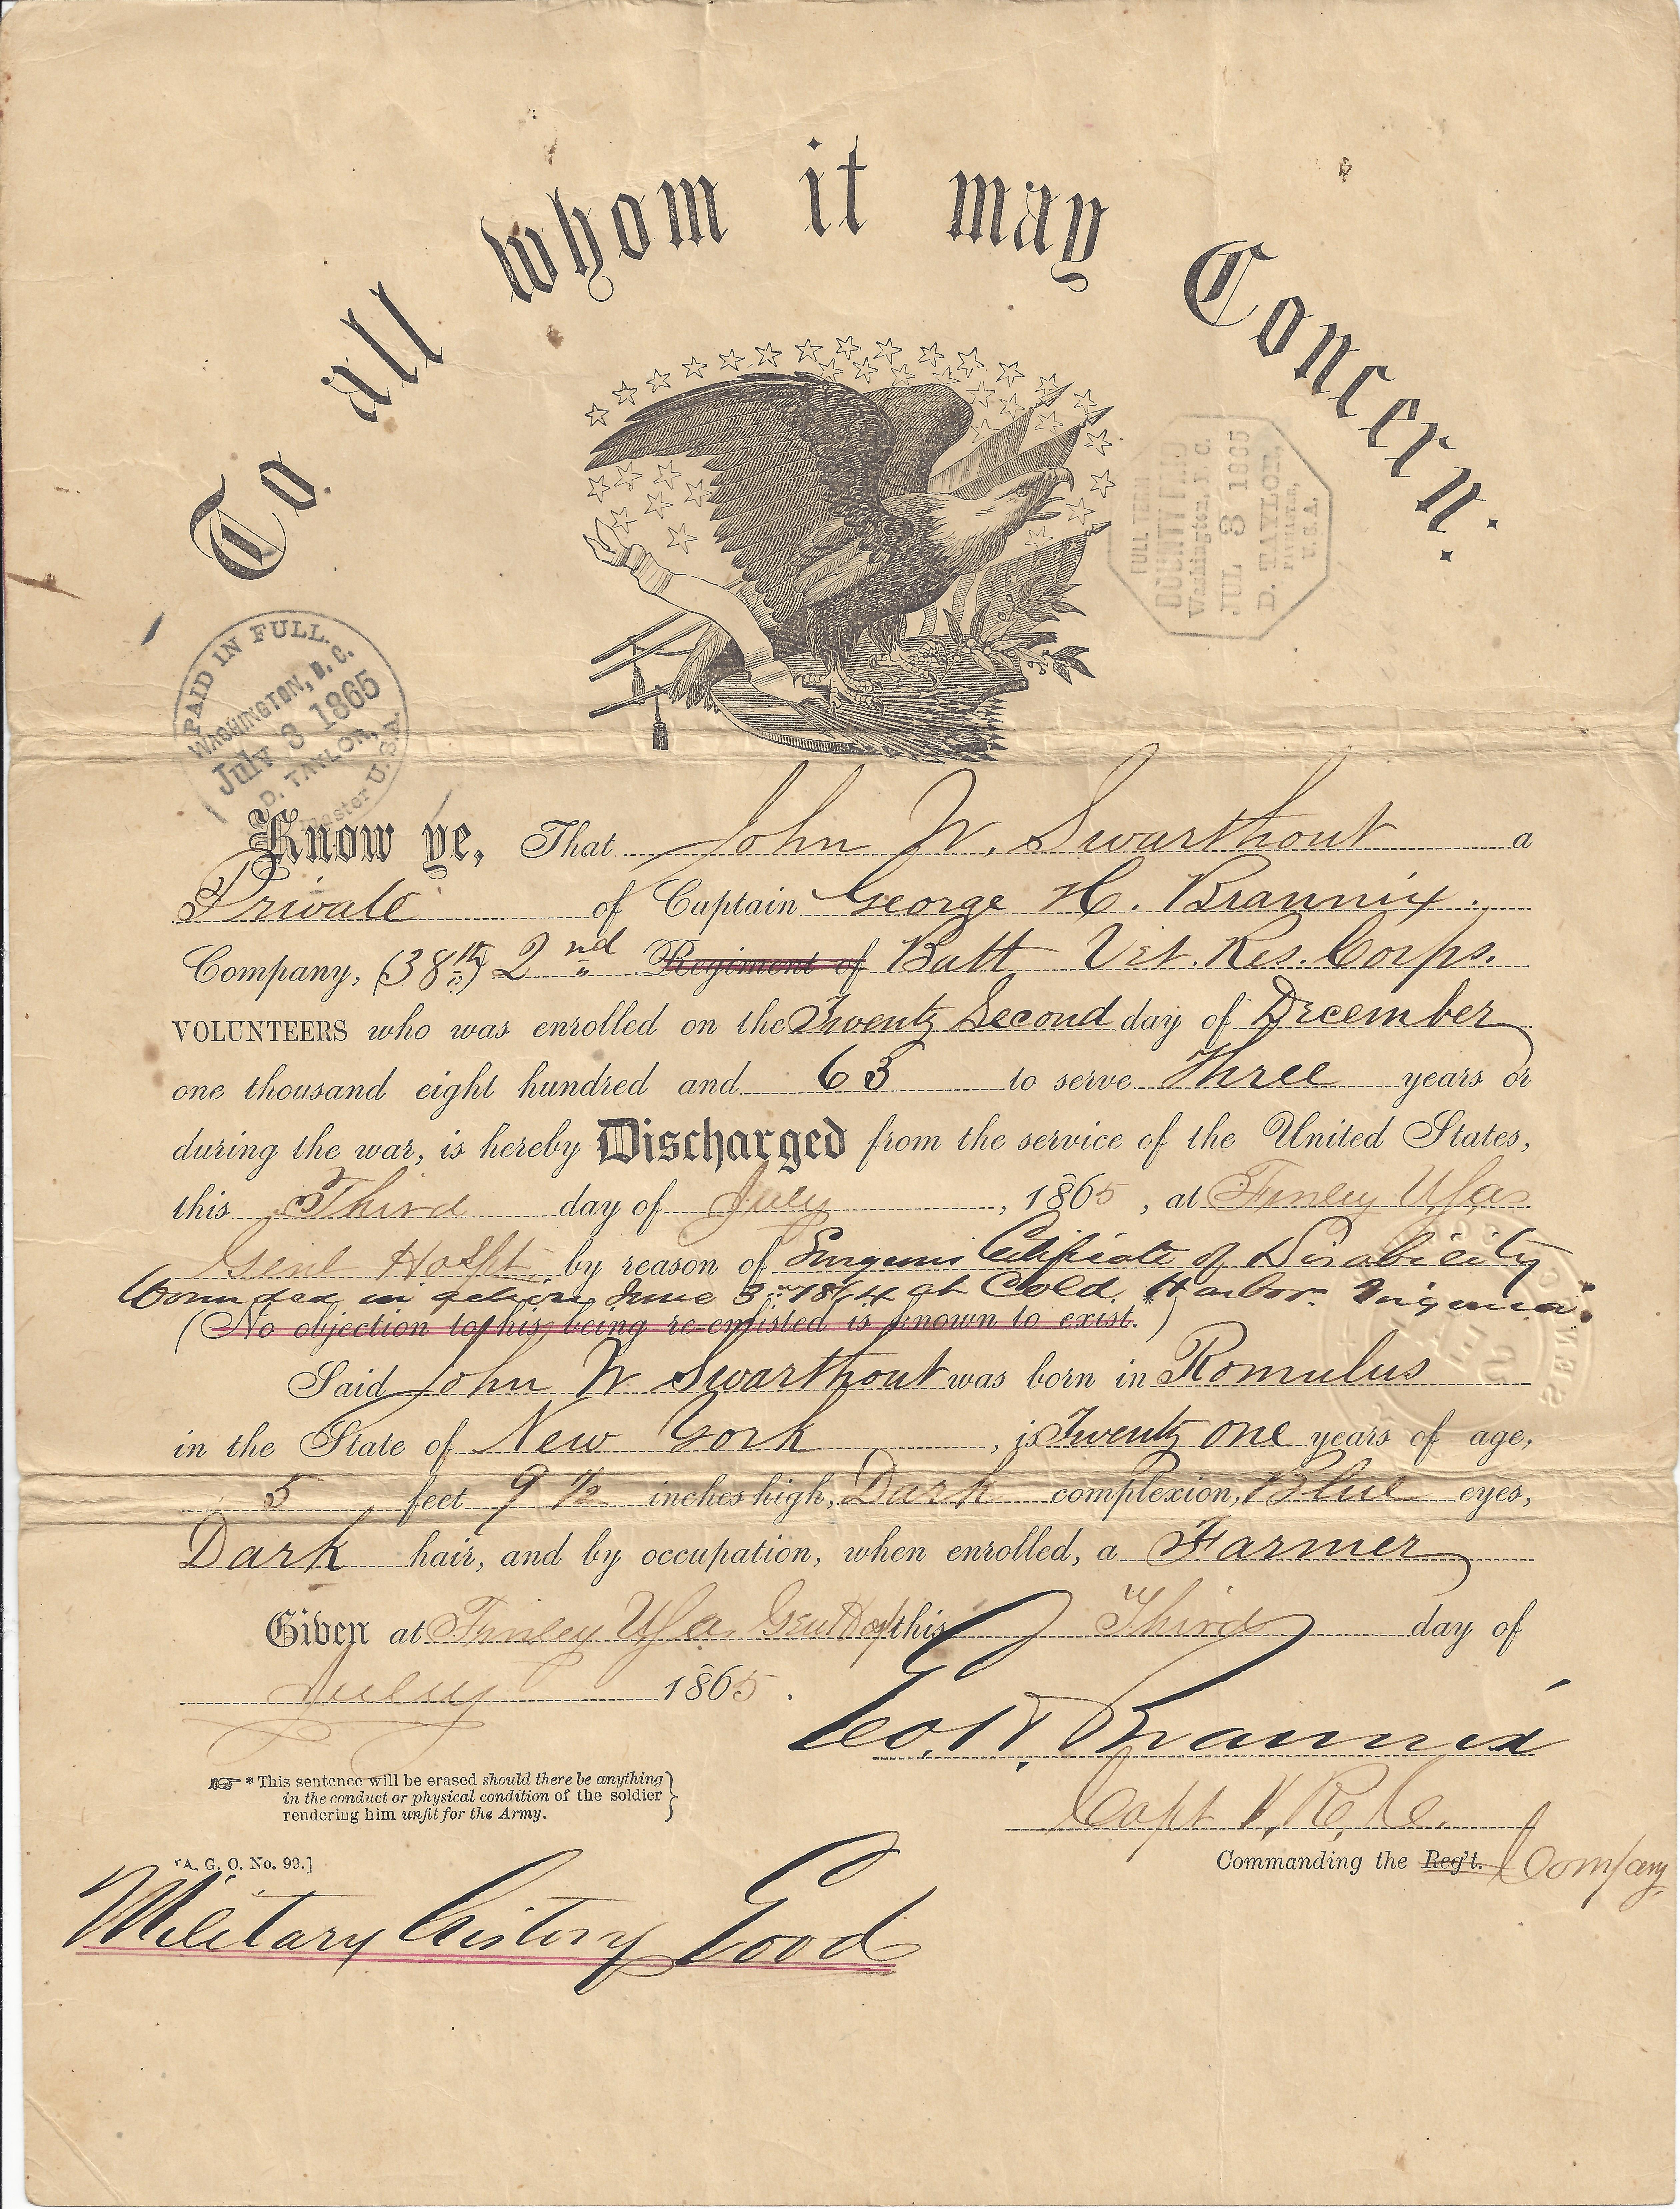 To all whom it may Concern:
FULL TERM
BOUNTY PAID
Washington, D. C.
JUL 3 1865
D. TAYLOR,
U.S.A.
PAID IN FULL.
WASHINGTON, D. C.
July 3 1865
D. TAYLOR,
U.S.A.
Know ye, That John W. Swarthout a
Private of Captain George H. Brannix.
Company, (38th) 2nd Regiment of Batt Vet. Res. Corps.
VOLUNTEERS who was enrolled on the Twenty Second day of December
one thousand eight hundred and 63 to serve Three years or
during the war, is hereby Discharged from the service of the United States,
this Third day of July, 1865, at Finley USA
Genl Hospt by reason of Surgeons Certificate of Disability
Wounded in action June 3rd 1864 at Cold Harbor Virginia.
(No objection to his being re-enlisted is known to exist.*)
Said John W Swarthout was born in Romulus
in the State of New York, is Twenty one years of age,
5 feet 9 1/2 inches high, Dark complexion, Blue eyes,
Dark hair, and by occupation, when enrolled, a Farmer
Given at Finley USA. Gen Hosp this Third day of
July 1865.
Geo. H. Brannix
*This sentence will be erased should there be anything
in the conduct or physical condition of the soldier
rendering him unfit for the Army.
Capt V. R. C.
[A. G. O. No. 99.]
Commanding the Reg't. Company
Military history Good